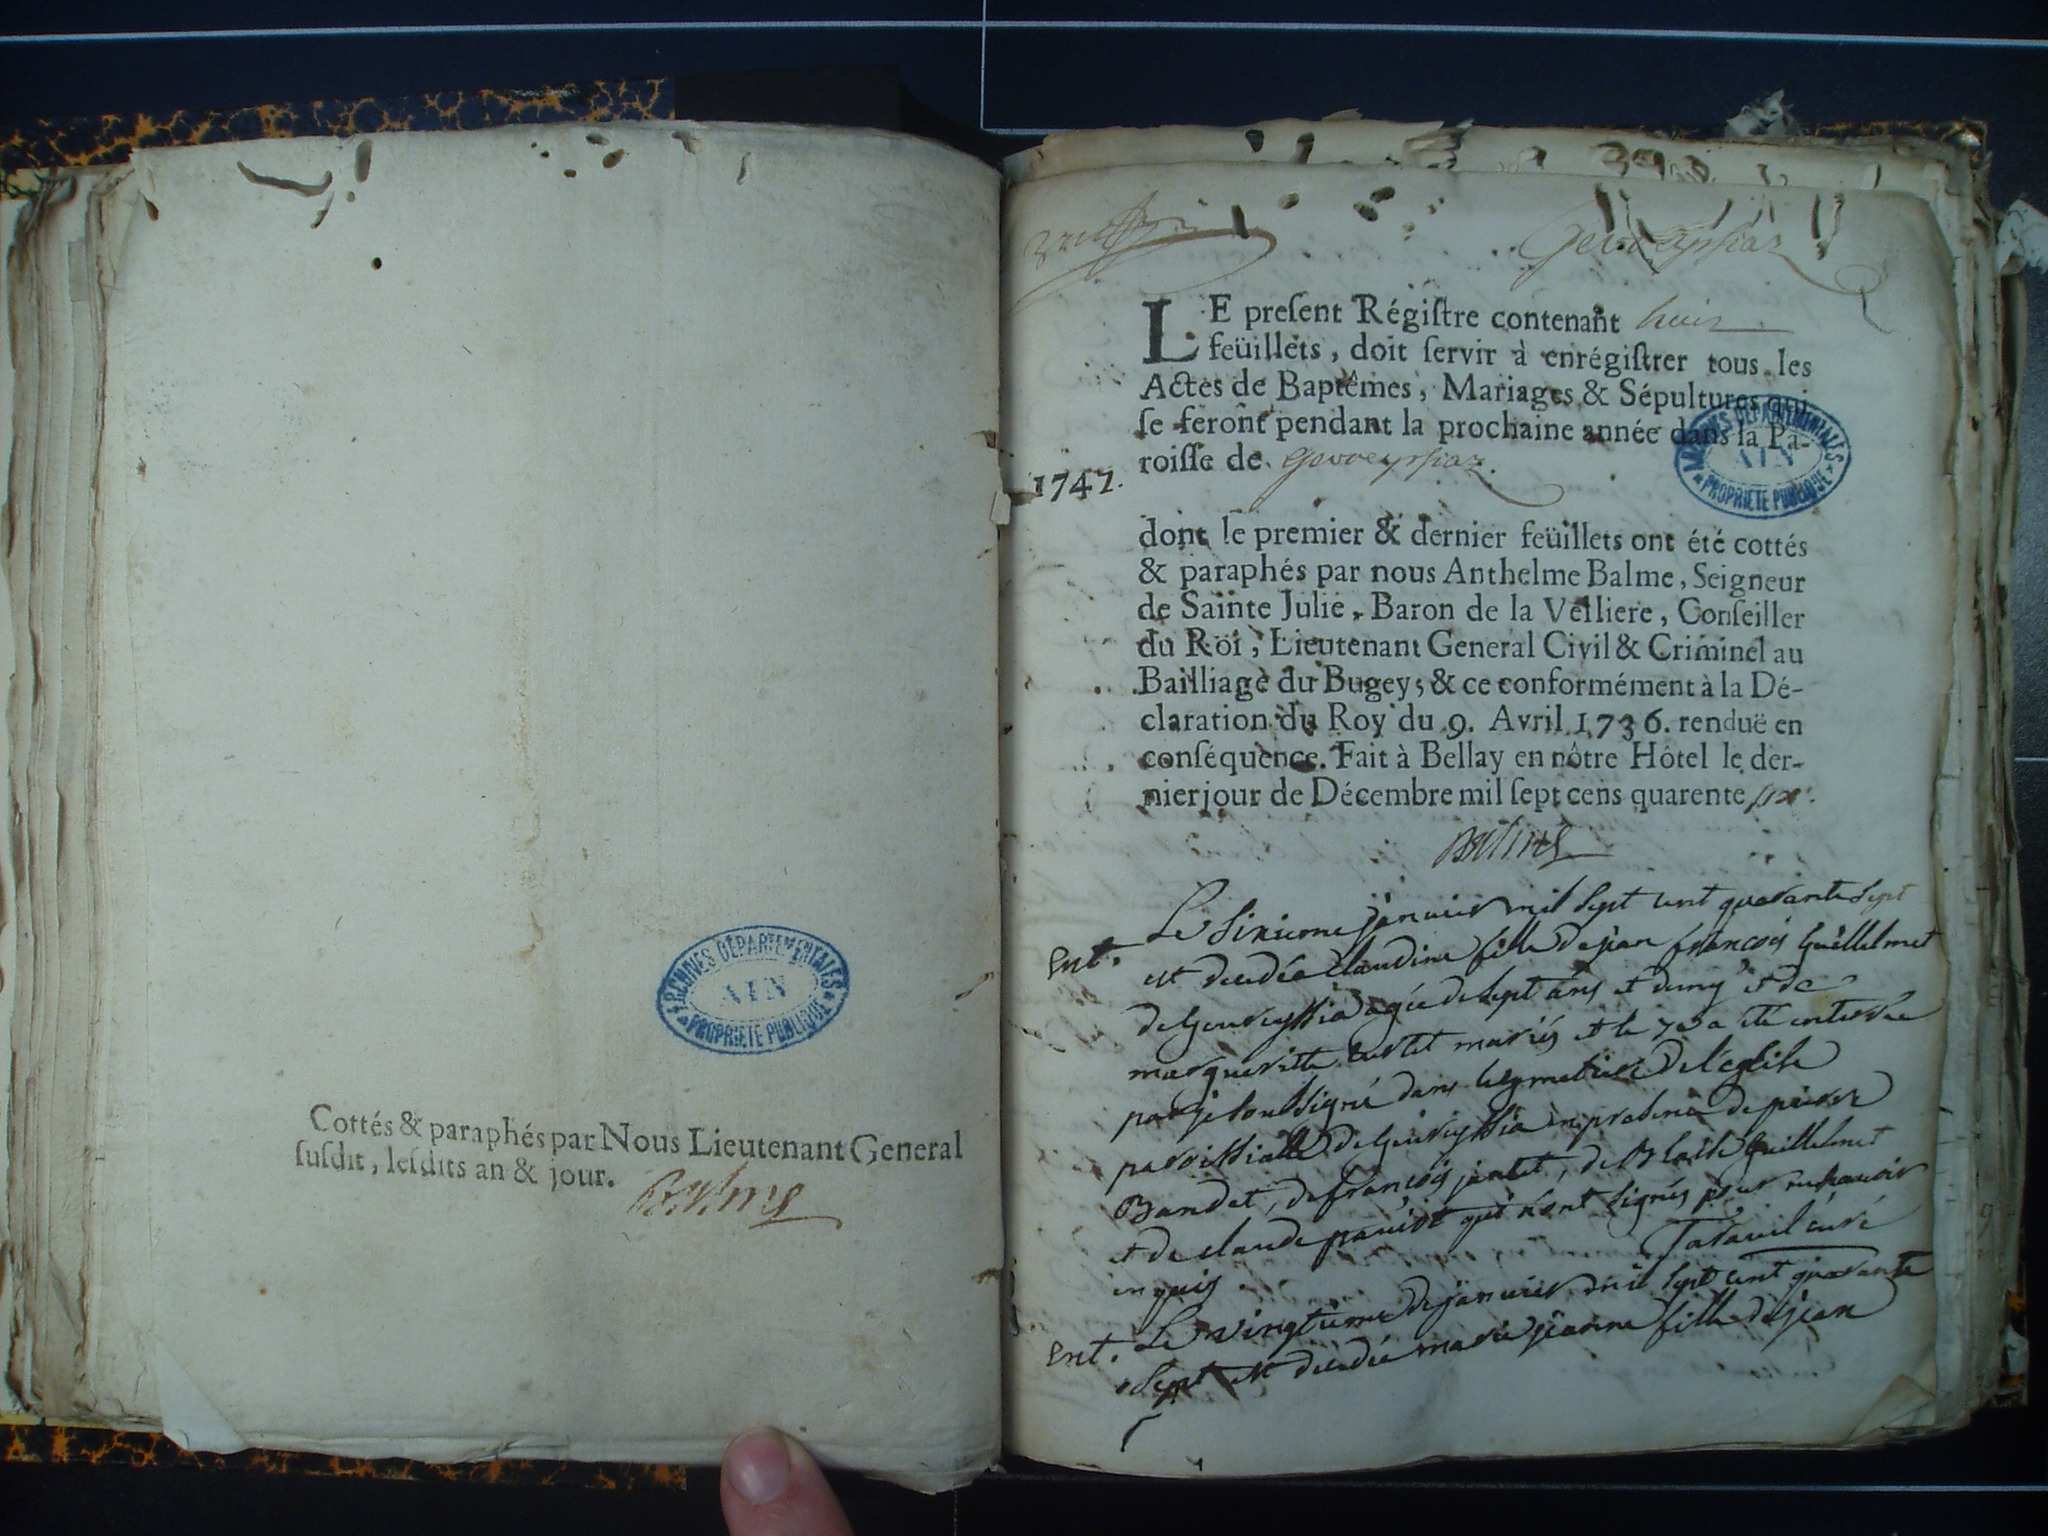 ARCHIVES DÉPARTEMENTALES
AIN
PROPRIETE PUBLIQUE
Cottés & paraphés par Nous Lieutenant General
ſuſdit, leſdits an & jour.
Balme
Gevreyssiaz
LE preſent Régiſtre contenant huit
feüillets, doit ſervir à enrégiſtrer tous les
Actes de Baptêmes, Mariages & Sépultures qui
ſe feront pendant la prochaine année dans la Pa-
roiſſe de Gevreyssiaz.
1747.
ARCHIVES DÉPARTEMENTALES
AIN
PROPRIETE PUBLIQUE
dont le premier & dernier feüillets ont été cottés
& paraphés par nous Anthelme Balme, Seigneur
de Sainte Julie, Baron de la Velliere, Conſeiller
du Roi, Lieutenant General Civil & Criminel au
Bailliage du Bugey, & ce conformément à la Dé-
claration du Roy du 9. Avril 1736. renduë en
conſéquence. Fait à Bellay en nôtre Hôtel le der-
nier jour de Décembre mil ſept cens quarente six.
Balme
Le sixieme janvier mil sept cent quarante sept
Ent. est decedée claudine fille de jean francois Guillelmet
de Gevreyssia agée de sept ans et demy et de
marguerite mariés et le 7e a été enterrée
par je soussigné dans le cymetiere de l'eglise
paroissialle de Gevreyssia en presence de pierre
Bandet, de francois jantet, de Blaise Guillelmet
et de claude qui n'ont signés pour ne scavoir
enquis Taravel curé
Ent. Le vingtieme de janvier mil sept cent quarante
sept est decedée marie jeanne fille de jean